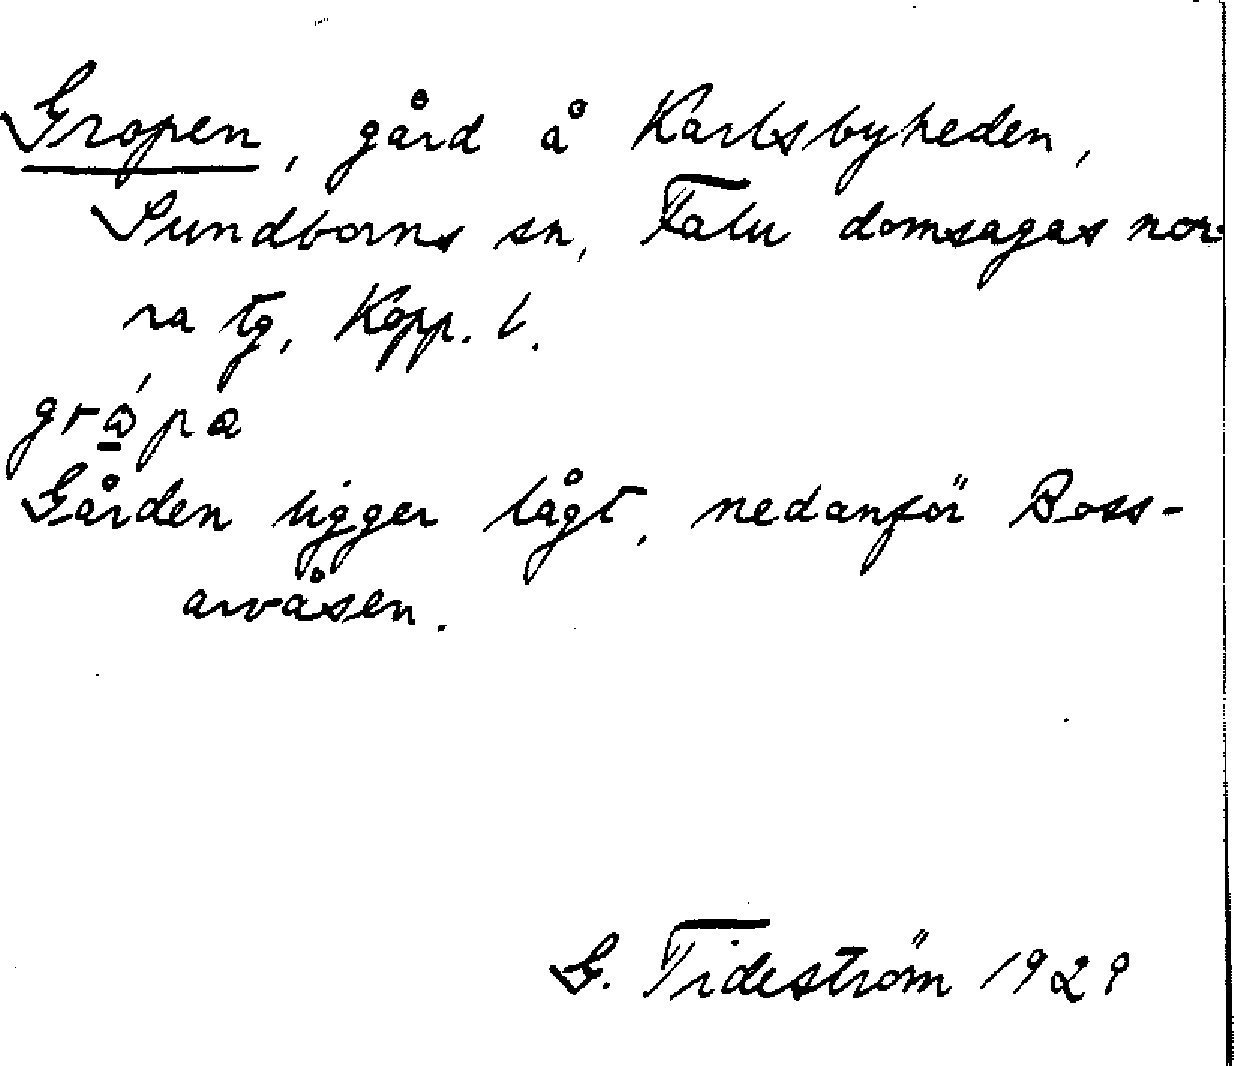 Gropen, gård å Karlsbyheden,
Sundborns sn, Falu domsagas nor-
ra tg, Kopp. l.
Gården ligger lågt, nedanför Boss-
arvåsen.
G. Tideström 1929